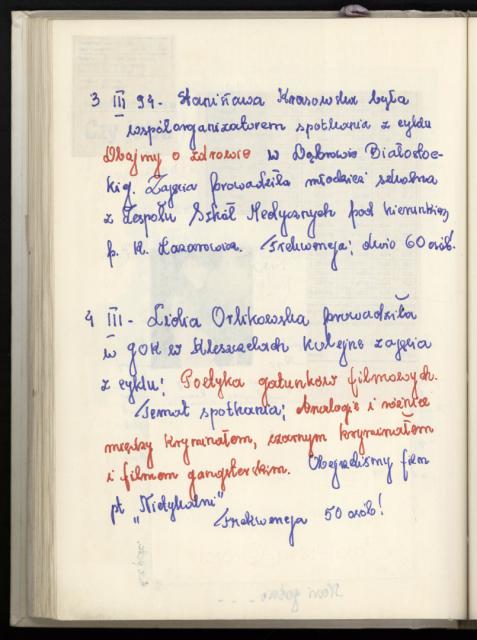 3 III 94 - Stanisława Krasowska była
współorganizatorem spotkania z cyklu
Dbajmy o zdrowie w Dąbrowie Białostoc-
kiej. Zajęcia prowadziła młodzież szkolna
z Zespołu Szkół Medycznych pod kierunkiem
p. K. Lazarowicz. Frekwencja; około 60 osób.
4 III - Lidia Orlikowska prowadziła
w GOK w Kleszczelach kolejne zajęcia
z cyklu; Poetyka gatunków filmowych.
Temat spotkania; Analogie i różnice
między kryminałem, czarnym kryminałem
i filmem gangsterskim. Obejrzeliśmy film
pt "Nietykalni"
Frekwencja 50 osób!